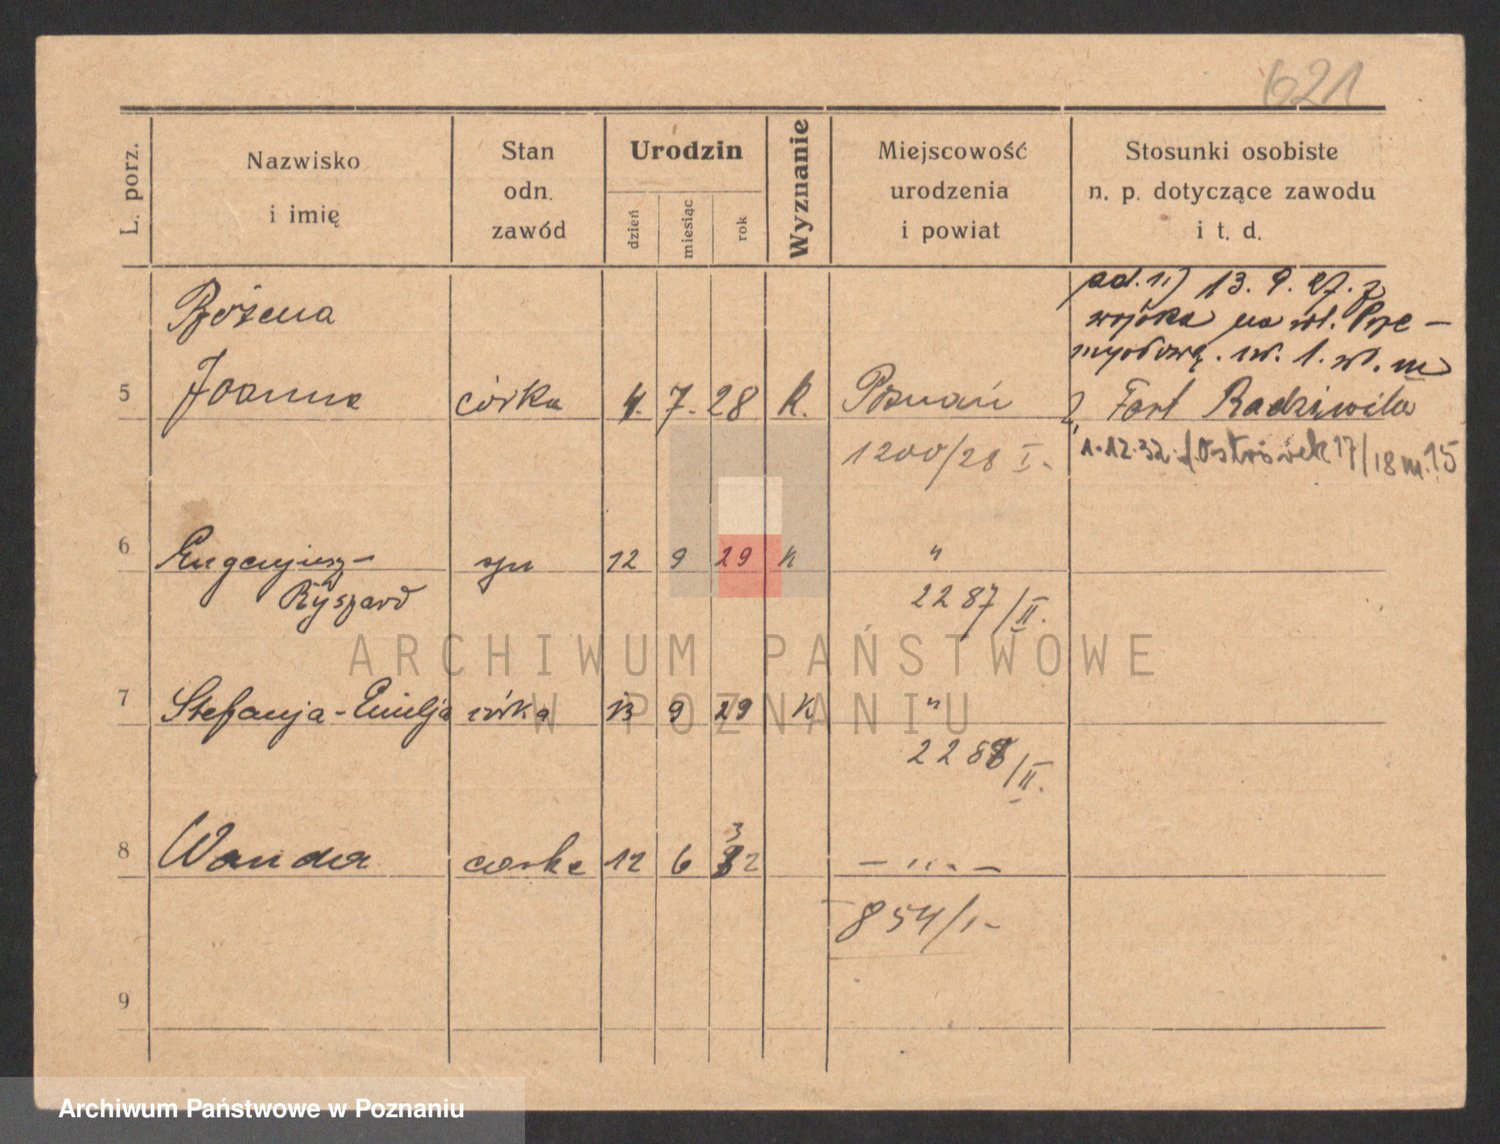 621
L. porz.
Nazwisko
i imię
Stan
odn.
zawód
Urodzin
dzień
miesiąc
rok
Wyznanie
Miejscowość
urodzenia
i powiat
Stosunki osobiste
n. p. dotyczące zawodu
i t. d.
ad. 1.) 13. 9. 27. z
wojska na ul. Prze-
mysłową. 1. m
Bożena
5 Joanna córka 4. 7. 28 k. Poznań 2, Fort Radziwiła
1200/28 I. 1.12.32. Ostrówek 17/18 m. 15
6 Eugenjusz- syn 12 9 29 k "
Ryszard 2287/II.
ARCHIWUM PAŃSTWOWE
W POZNANIU
7 Stefanja-Emilja córka 13 9 29 k "
2288/II.
8 Wanda corka 12 6 32 — " —
854/I
9
Archiwum Państwowe w Poznaniu